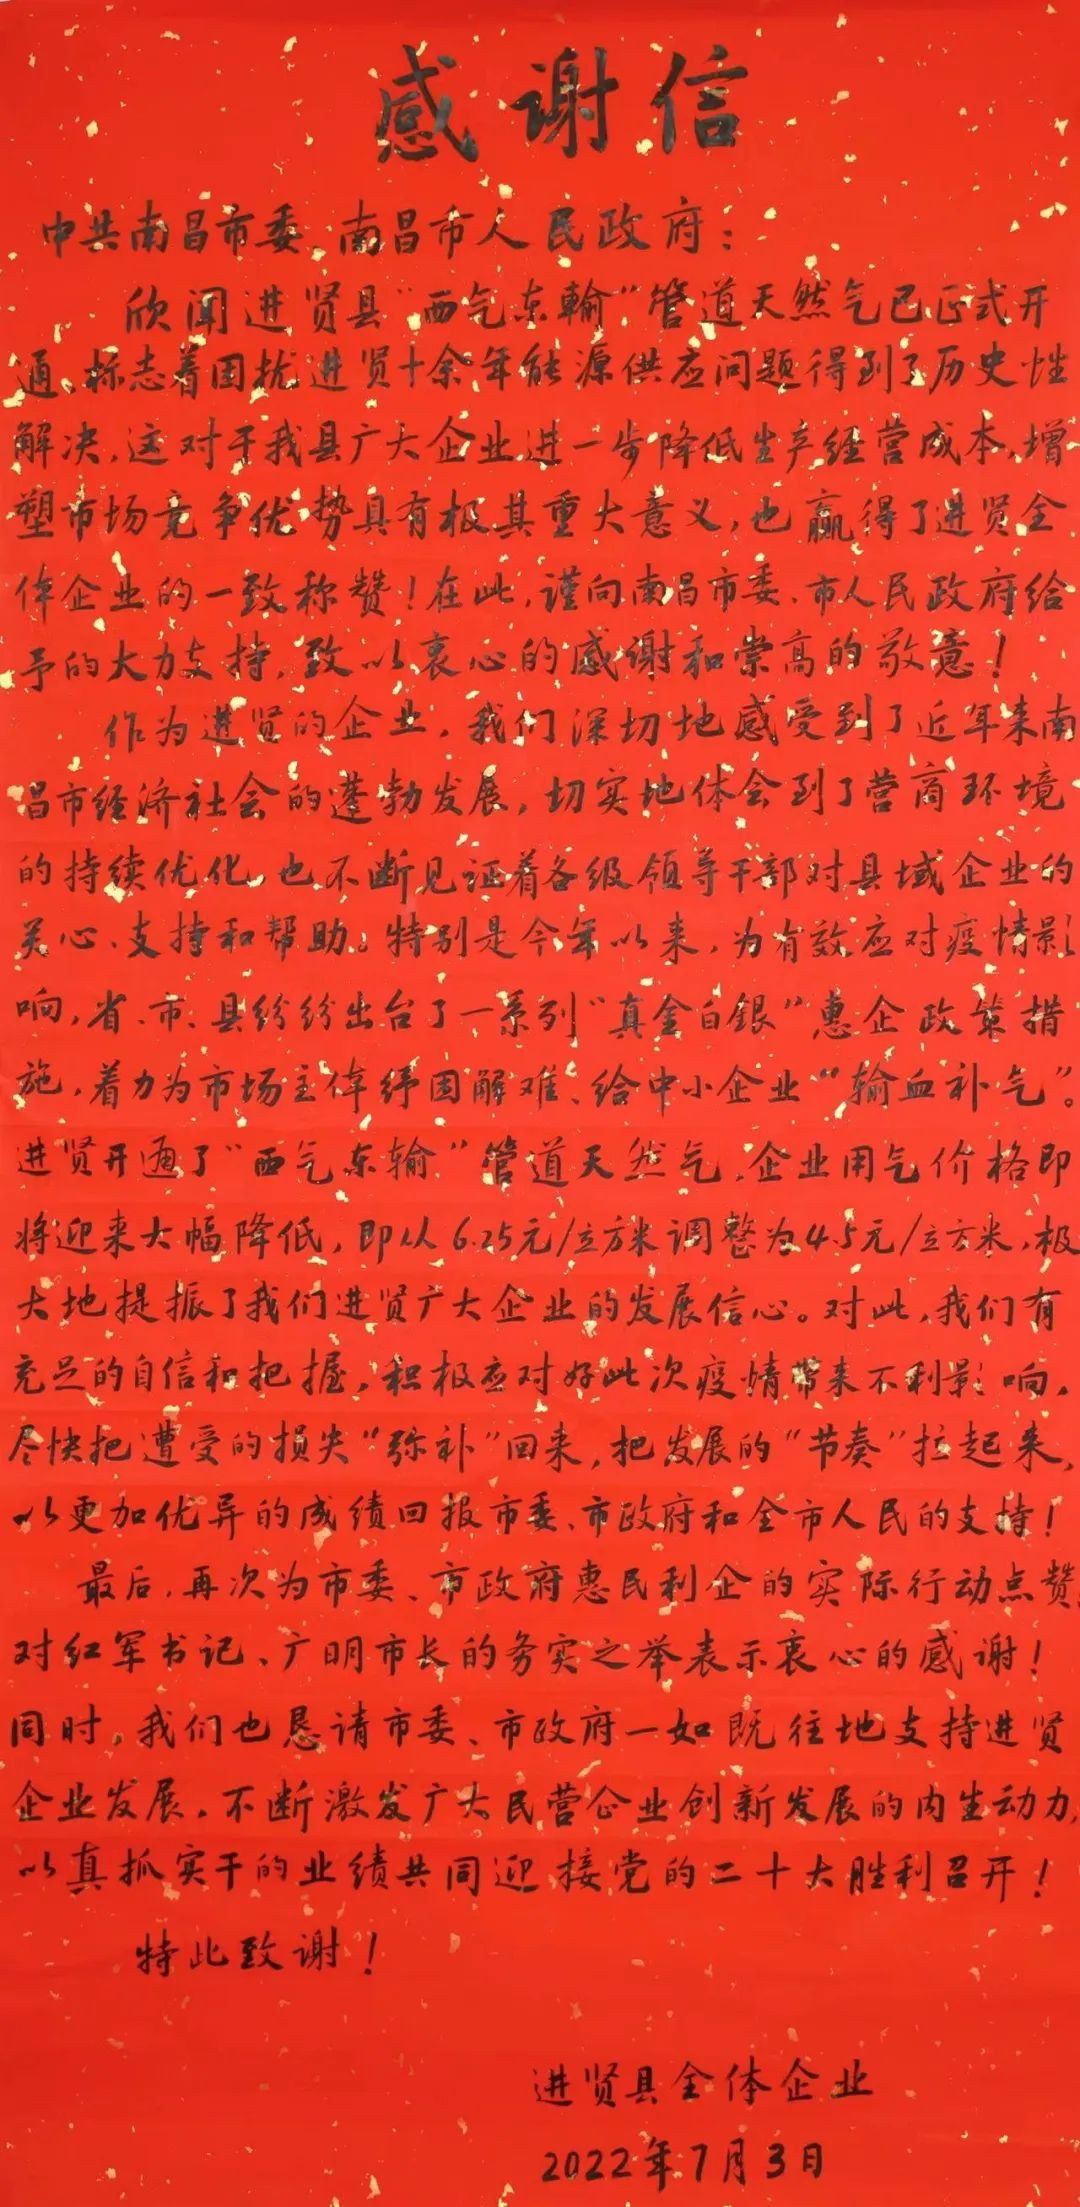 感谢信
中共南昌市委、南昌市人民政府：
欣闻进贤县“西气东输”管道天然气已正式开
通、标志着困扰进贤十余年能源供应问题得到了历史性
解决，这对于我县广大企业进一步降低生产经营成本，增
塑市场竞争优势具有极其重大意义，也赢得了进贤全
体企业的一致称赞！在此，谨向南昌市委、市人民政府给
予的大力支持，致以衷心的感谢和崇高的敬意！
作为进贤的企业，我们深切地感受到了近年来南
昌市经济社会的蓬勃发展，切实地体会到了营商环境
的持续优化，也不断见证着各级领导干部对县域企业的
关心、支持和帮助。特别是今年以来，为有效应对疫情影
响，省、市、县纷纷出台了一系列“真金白銀”惠企政策措
施，着力为市场主体纾困解难、给中小企业“输血补气”。
进贤开通了“西气东输”管道天然气，企业用气价格即
将迎来大幅降低，即从6.25元/立方米调整为4.5元/立方米，极
大地提振了我们进贤广大企业的发展信心。对此，我们有
充足的自信和把握，积极应对好此次疫情带来不利影响，
尽快把遭受的损失“弥补”回来，把发展的“节奏”拉起来，
以更加优异的成绩回报市委、市政府和全市人民的支持！
最后，再次为市委、市政府惠民利企的实际行动点赞，
对红军书记、广明市长的务实之举表示衷心的感谢！
同时，我们也恳请市委、市政府一如既往地支持进贤
企业发展，不断激发广大民营企业创新发展的内生动力，
以真抓实干的业绩共同迎接党的二十大胜利召开！
特此致谢！
进贤县全体企业
2022年7月3日